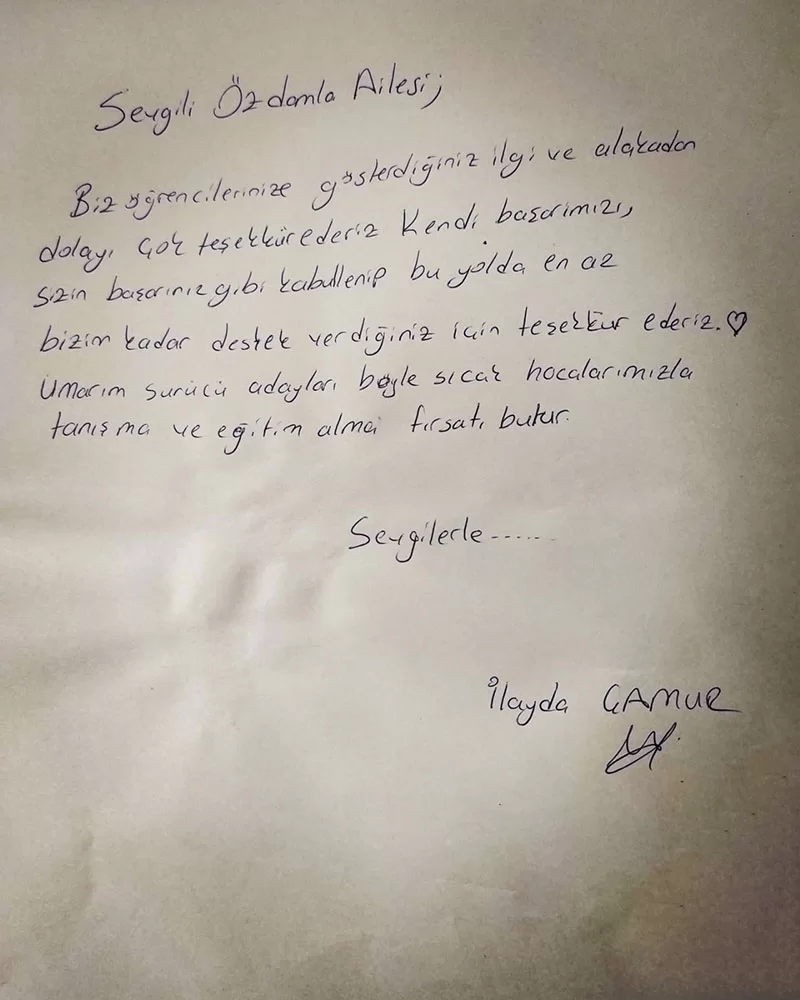 Sevgili Özdamla Ailesi;
Biz öğrencilerinize gösterdiğiniz ilgi ve alakadan
dolayı çok teşekkür ederiz Kendi başarımızı,
sizin başarınız gibi kabullenip bu yolda en az
bizim kadar destek verdiğiniz için teşekkür ederiz. ♡
Umarım sürücü adayları böyle sıcak hocalarımızla
tanışma ve eğitim alma fırsatı bulur.
Sevgilerle......
İlayda ÇAMUR